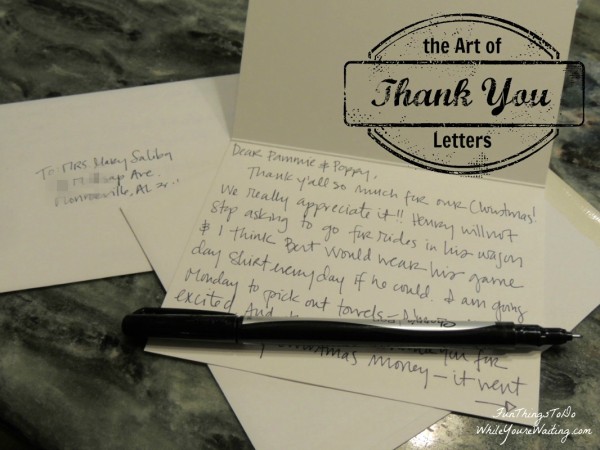 the Art of
Thank You
Letters
To Mrs. Mary Saliby
Ave.
Monroeville, AL
Dear Pammie & Poppy,
Thank y'all so much for our Christmas!
We really appreciate it!! Henry will not
stop asking to go for rides in his wagon
& I think Bert would wear his game
day shirt every day if he could. I am going
Monday to pick out towels -
excited And
you for
Christmas money - it went
FunThingsToDo
WhileYoureWaiting.com